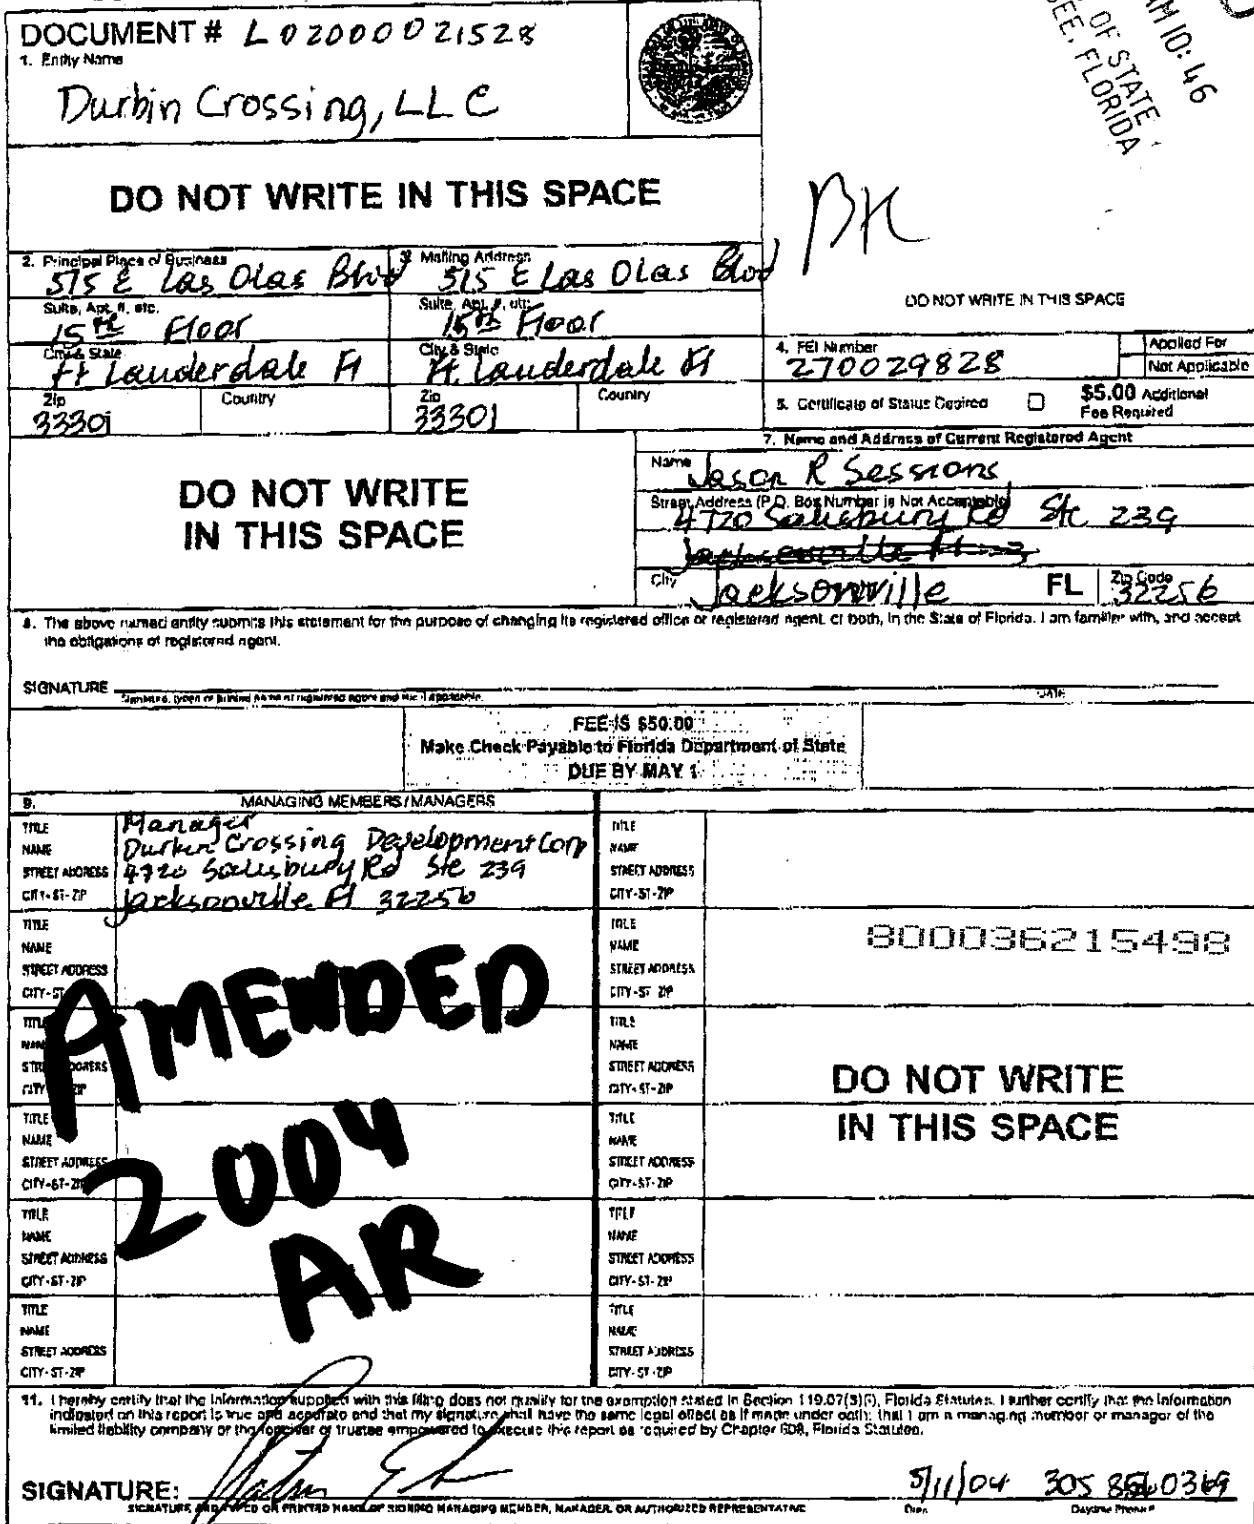 DOCUMENT # L02000021528
1. Entity Name
Durbin Crossing, LLC
AM 10:46
OF STATE
SEE, FLORIDA
DO NOT WRITE IN THIS SPACE
BK
2. Principal Place of Business
515 E Las Olas Blvd
3. Mailing Address
515 E Las Olas Blvd
Suite, Apt. #, etc.
15th Floor
Suite, Apt. #, etc.
15th Floor
DO NOT WRITE IN THIS SPACE
City & State
Ft Lauderdale Fl
City & State
Ft. Lauderdale Fl
4. FEI Number
270029828
Applied For
Not Applicable
Zip
33301
Country
Zip
33301
Country
5. Certificate of Status Desired
$5.00 Additional
Fee Required
7. Name and Address of Current Registered Agent
DO NOT WRITE
IN THIS SPACE
Name
Jason R Sessions
Street Address (P.O. Box Number is Not Acceptable)
4720 Salisbury Rd Ste 239
City
Jacksonville
FL
Zip Code
32256
8. The above named entity submits this statement for the purpose of changing its registered office or registered agent, or both, in the State of Florida. I am familiar with, and accept
the obligations of registered agent.
SIGNATURE
Signature, typed or printed name of registered agent and title if applicable.
DATE
FEE IS $50.00
Make Check Payable to Florida Department of State
DUE BY MAY 1
9.
MANAGING MEMBERS/MANAGERS
TITLE
Manager
NAME
Durbin Crossing Development Corp
STREET ADDRESS
4720 Salisbury Rd Ste 239
CITY-ST-ZIP
Jacksonville Fl 32256
TITLE
NAME
STREET ADDRESS
CITY-ST-ZIP
TITLE
NAME
STREET ADDRESS
CITY-ST
TITLE
NAME
STREET ADDRESS
CITY-ST-ZIP
800036215498
AMENDED
2004
AR
TITLE
NAME
STREET ADDRESS
CITY-ST-ZIP
TITLE
NAME
STREET ADDRESS
CITY-ST-ZIP
DO NOT WRITE
IN THIS SPACE
TITLE
NAME
STREET ADDRESS
CITY-ST-ZIP
TITLE
NAME
STREET ADDRESS
CITY-ST-ZIP
TITLE
NAME
STREET ADDRESS
CITY-ST-ZIP
TITLE
NAME
STREET ADDRESS
CITY-ST-ZIP
TITLE
NAME
STREET ADDRESS
CITY-ST-ZIP
TITLE
NAME
STREET ADDRESS
CITY-ST-ZIP
11. I hereby certify that the information supplied with this filing does not qualify for the exemption stated in Section 119.07(3)(i), Florida Statutes. I further certify that the information
indicated on this report is true and accurate and that my signature shall have the same legal effect as if made under oath; that I am a managing member or manager of the
limited liability company or the receiver or trustee empowered to execute this report as required by Chapter 608, Florida Statutes.
SIGNATURE:
5/11/04 305 0369
SIGNATURE AND TYPED OR PRINTED NAME OF SIGNING MANAGING MEMBER, MANAGER, OR AUTHORIZED REPRESENTATIVE
Date
Daytime Phone #